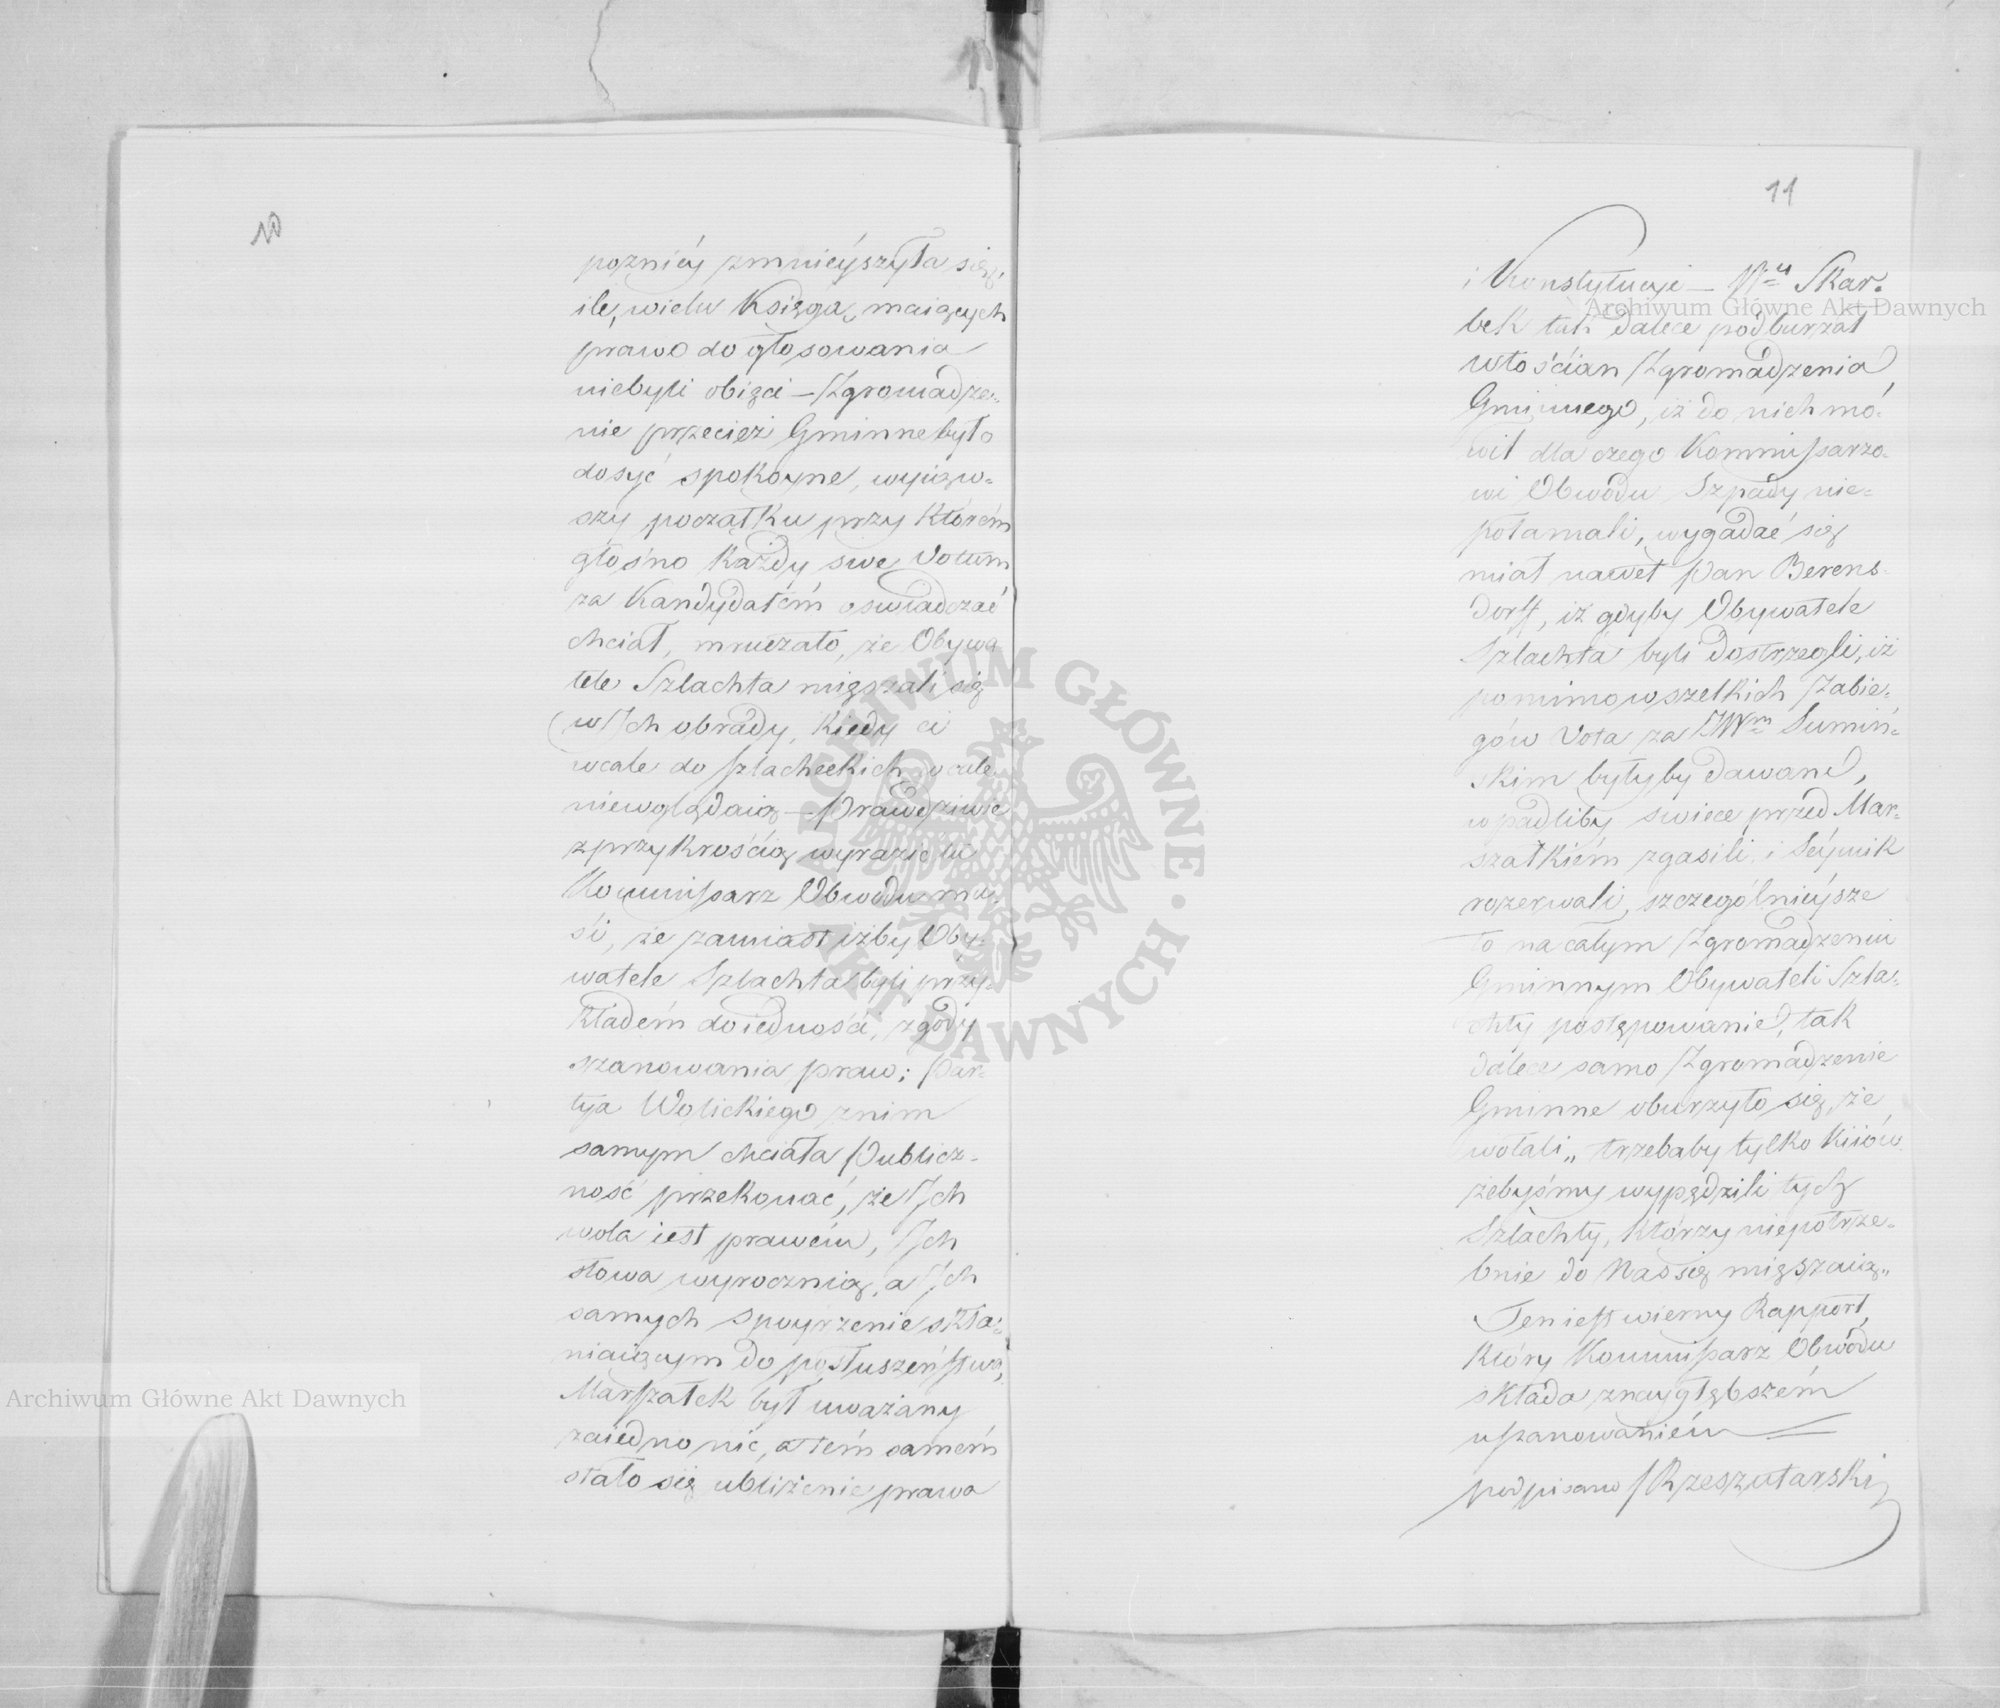 10
poźniéy zmnieyszyła się,
ile, wielu Księgą maiących
prawo do głosowania
niebyli obięci — Zgromadze-
nie przecież Gminne było
dosyć spokoyne, wyiąw-
szy początku przy którém
głośno każdy swe Votum
za Kandydatém oswiadczać
chciał, mruczało, że Obywa
tele Szlachta mięszali się
w Ich obrady, kiedy ci
wcale do szlacheckich wcale
niewglądaią — Prawdziwie
z przykrością wyrazić tu
Kommissarz Obwodu mu-
si, że zamiast iżby Oby-
watele Szlachta byli przy-
kładém do iedności, zgody
szanowania praw; Par-
tya Wolickiego z nim
samym chciała Publicz-
ność przekonać, że Ich
wola iest prawém, Ich
słowa wyrocznią, a Ich
samych spoyrzenie skła-
niaiącym do posłuszeństwa,
Marszałek był uważany
za iedno nic, a tém samém
stało się ubliżenie prawa
11
i Konstytucyi — Wny Skar-
bek tak dalece podburzał
włościan Zgromadzenia
Gminnego, iż do nich mó-
wił dla czego Kommissarzo-
wi Obwodu Szpady nie-
połamali, wygadać się
miał nawet Pan Berens-
dorff, iż gdyby Obywatele
Szlachta byli dostrzegli, iż
pomimo wszelkich Zabie-
gów Vota za JWm Sumiń-
skim byłyby dawane,
wpadliby swiece przed Mar-
szałkiém zgasili i Seymik
rozerwali, szczególnieysze
to na całym Zgromadzeniu
Gminnym Obywateli Szla-
chty postępowanie, tak
dalece samo Zgromadzenie
Gminne oburzyło się, że
wołali „ trzebaby tylko kiiów
żebyśmy wypędzili tych
Szlachty, którzy niepotrze-
bnie do Nas się mięszaią„
Ten iest wierny Rapport,
który Kommissarz Obwodu
składa z naygłębszém
uszanowaniém
podpisano Rzeszutarski
Archiwum Główne Akt Dawnych
Archiwum Główne Akt Dawnych
ARCHIWUM GŁÓWNE
AKT DAWNYCH